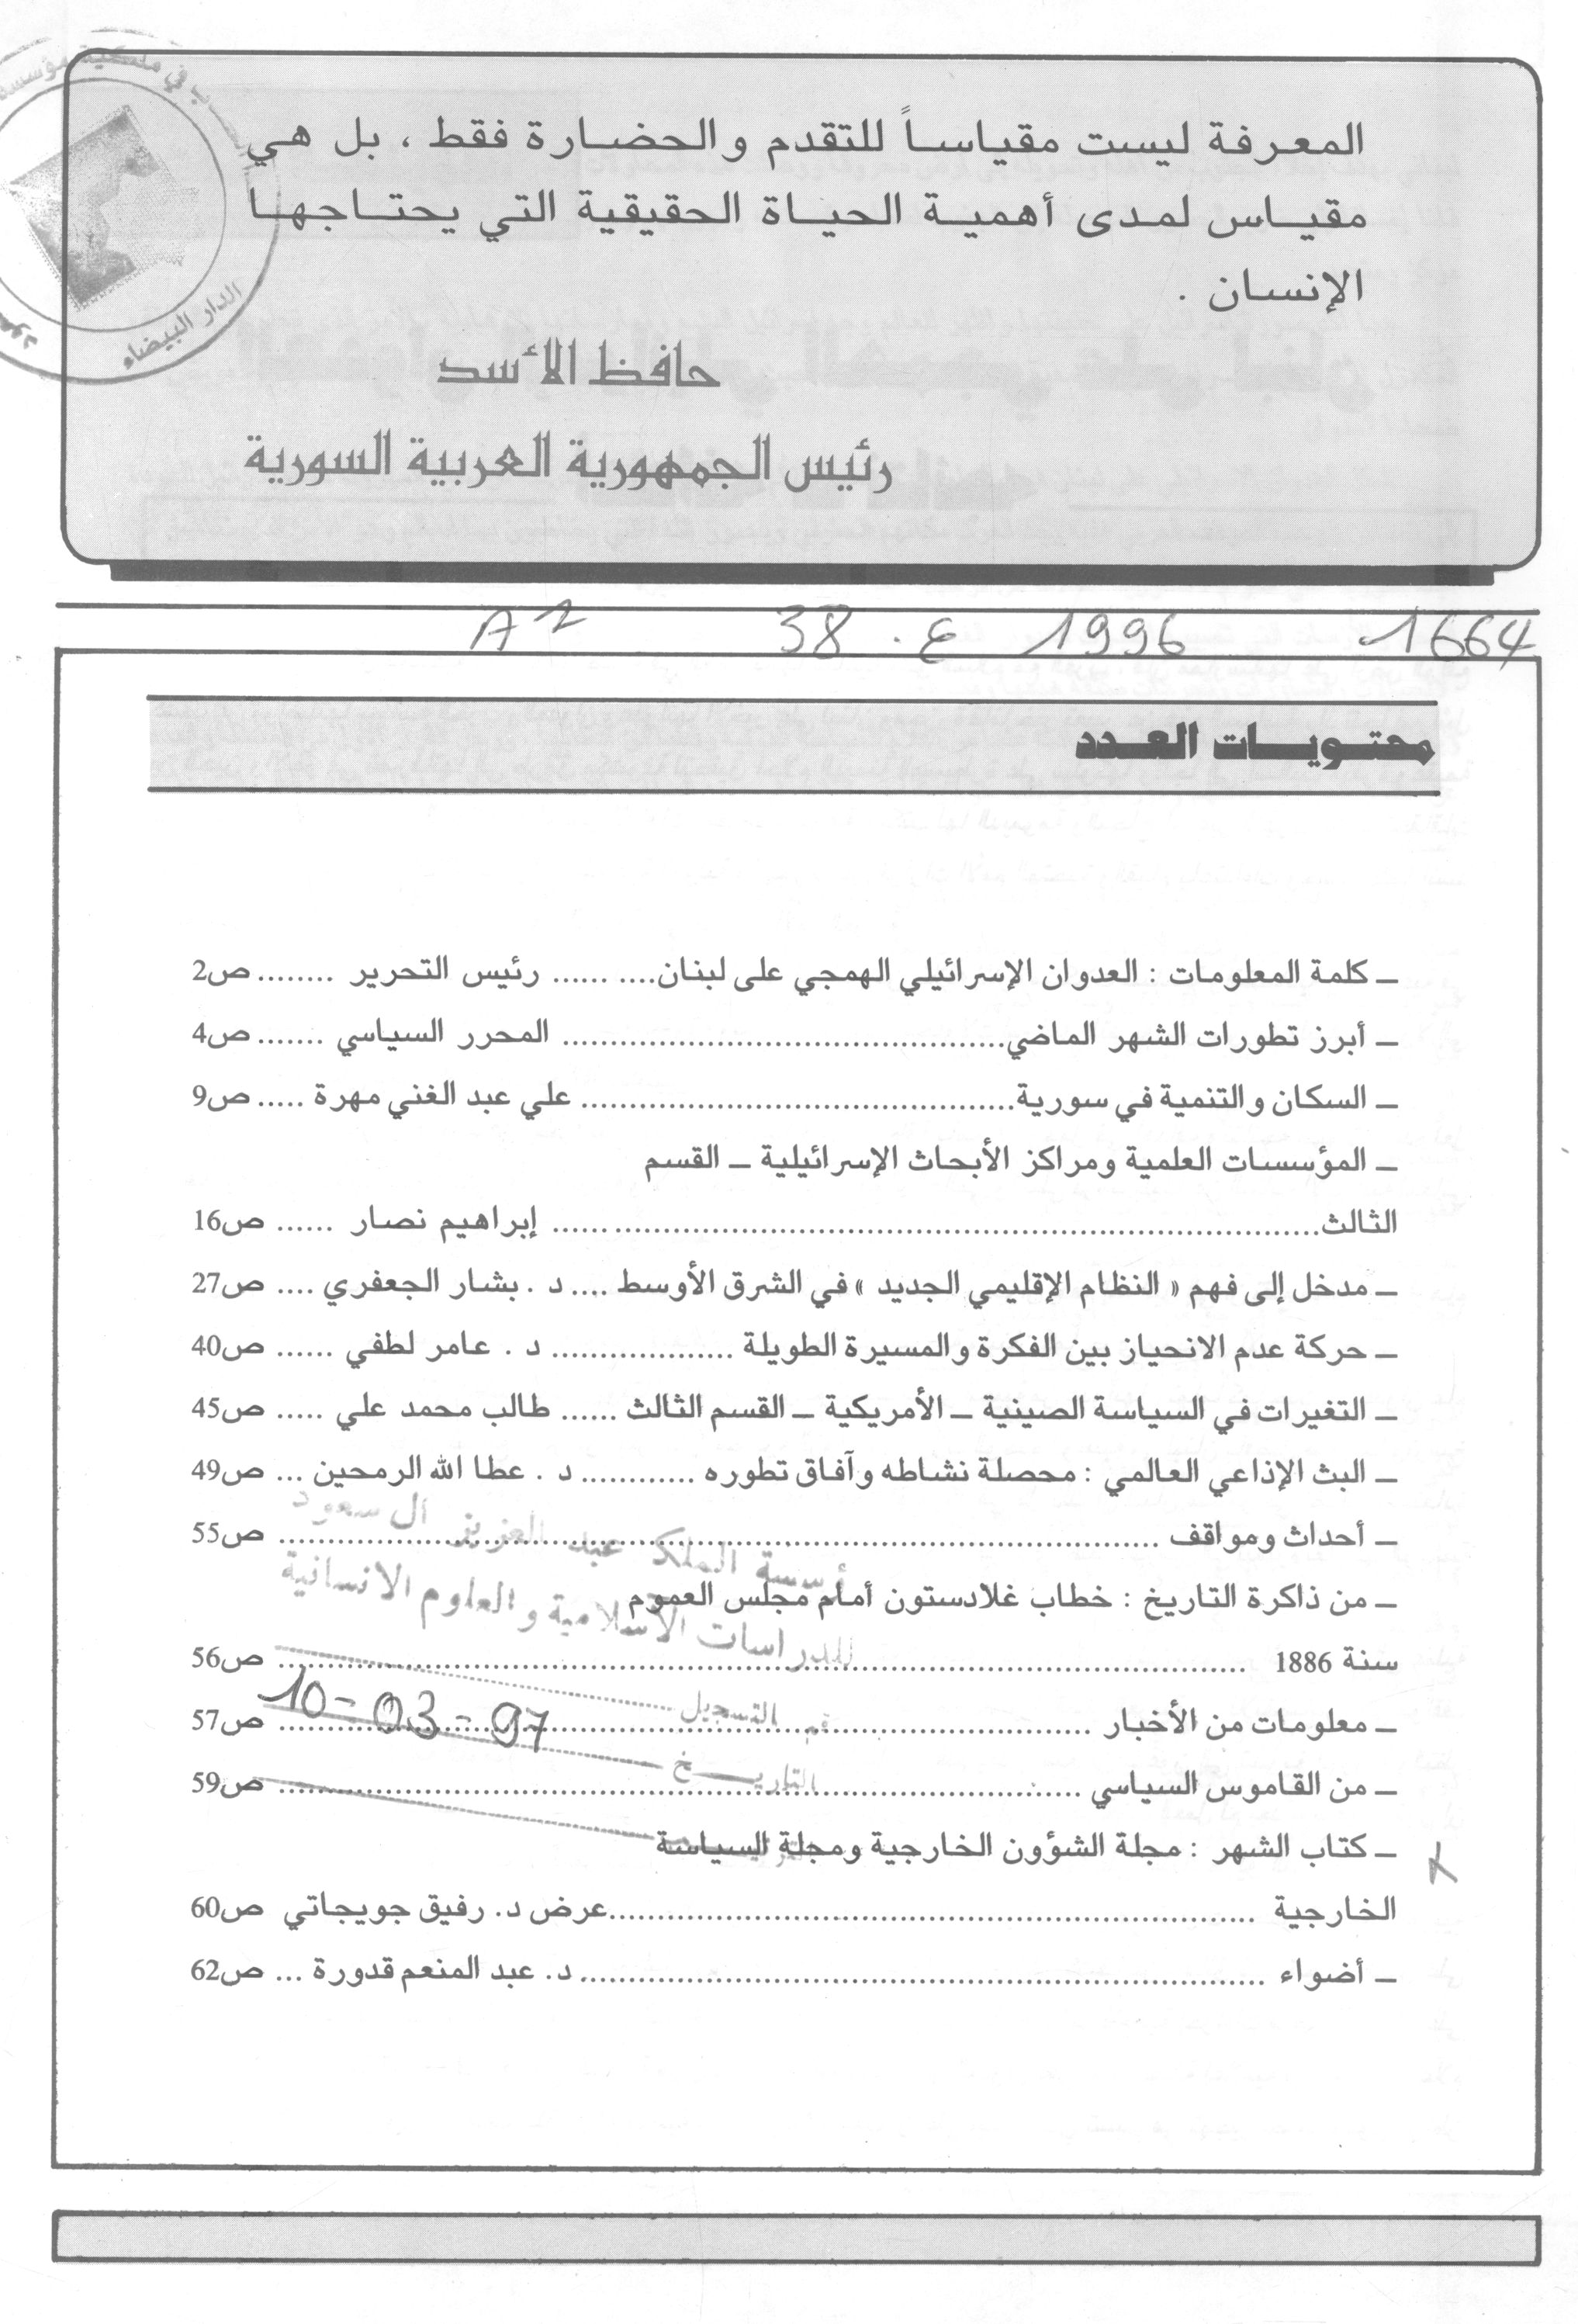 المعرفة ليست مقياساً للتقدم والحضارة فقط ، بل هي
مقياس لمدى أهمية الحياة الحقيقية التي يحتاجها
الإنسان .
حافظ الأسد
رئيس الجمهورية العربية السورية
الدار البيضاء
1664 1996 ع . 38 A2
محتويات العدد
ـ كلمة المعلومات : العدوان الإسرائيلي الهمجي على لبنان.... ...... رئيس التحرير ........ ص2
ـ أبرز تطورات الشهر الماضي................................................ المحرر السياسي ....... ص4
ـ السكان والتنمية في سورية............................................... علي عبد الغني مهرة ..... ص9
ـ المؤسسات العلمية ومراكز الأبحاث الإسرائيلية ـ القسم
الثالث................................................................................... إبراهيم نصار ...... ص16
ـ مدخل إلى فهم « النظام الإقليمي الجديد » في الشرق الأوسط .... د . بشار الجعفري .... ص27
ـ حركة عدم الانحياز بين الفكرة والمسيرة الطويلة .................... د . عامر لطفي ...... ص40
ـ التغيرات في السياسة الصينية ـ الأمريكية ـ القسم الثالث ...... طالب محمد علي ..... ص45
ـ البث الإذاعي العالمي : محصلة نشاطه وآفاق تطوره ............ د . عطا الله الرمحين ... ص49
ـ أحداث ومواقف ................................................................................................ ص55
ـ من ذاكرة التاريخ : خطاب غلادستون أمام مجلس العموم
سنة 1886 ......................................................................................................... ص56
ـ معلومات من الأخبار ........................................................................................ ص57
ـ من القاموس السياسي ....................................................................................... ص59
ـ كتاب الشهر : مجلة الشؤون الخارجية ومجلة السياسة
الخارجية ......................................................................عرض د. رفيق جويجاتي ص60
ـ أضواء ..........................................................................د. عبد المنعم قدورة ... ص62
الملك عبد العزيز آل سعود
للدراسات الاسلامية والعلوم الانسانية
التسجيل
10-03-97
التاريخ